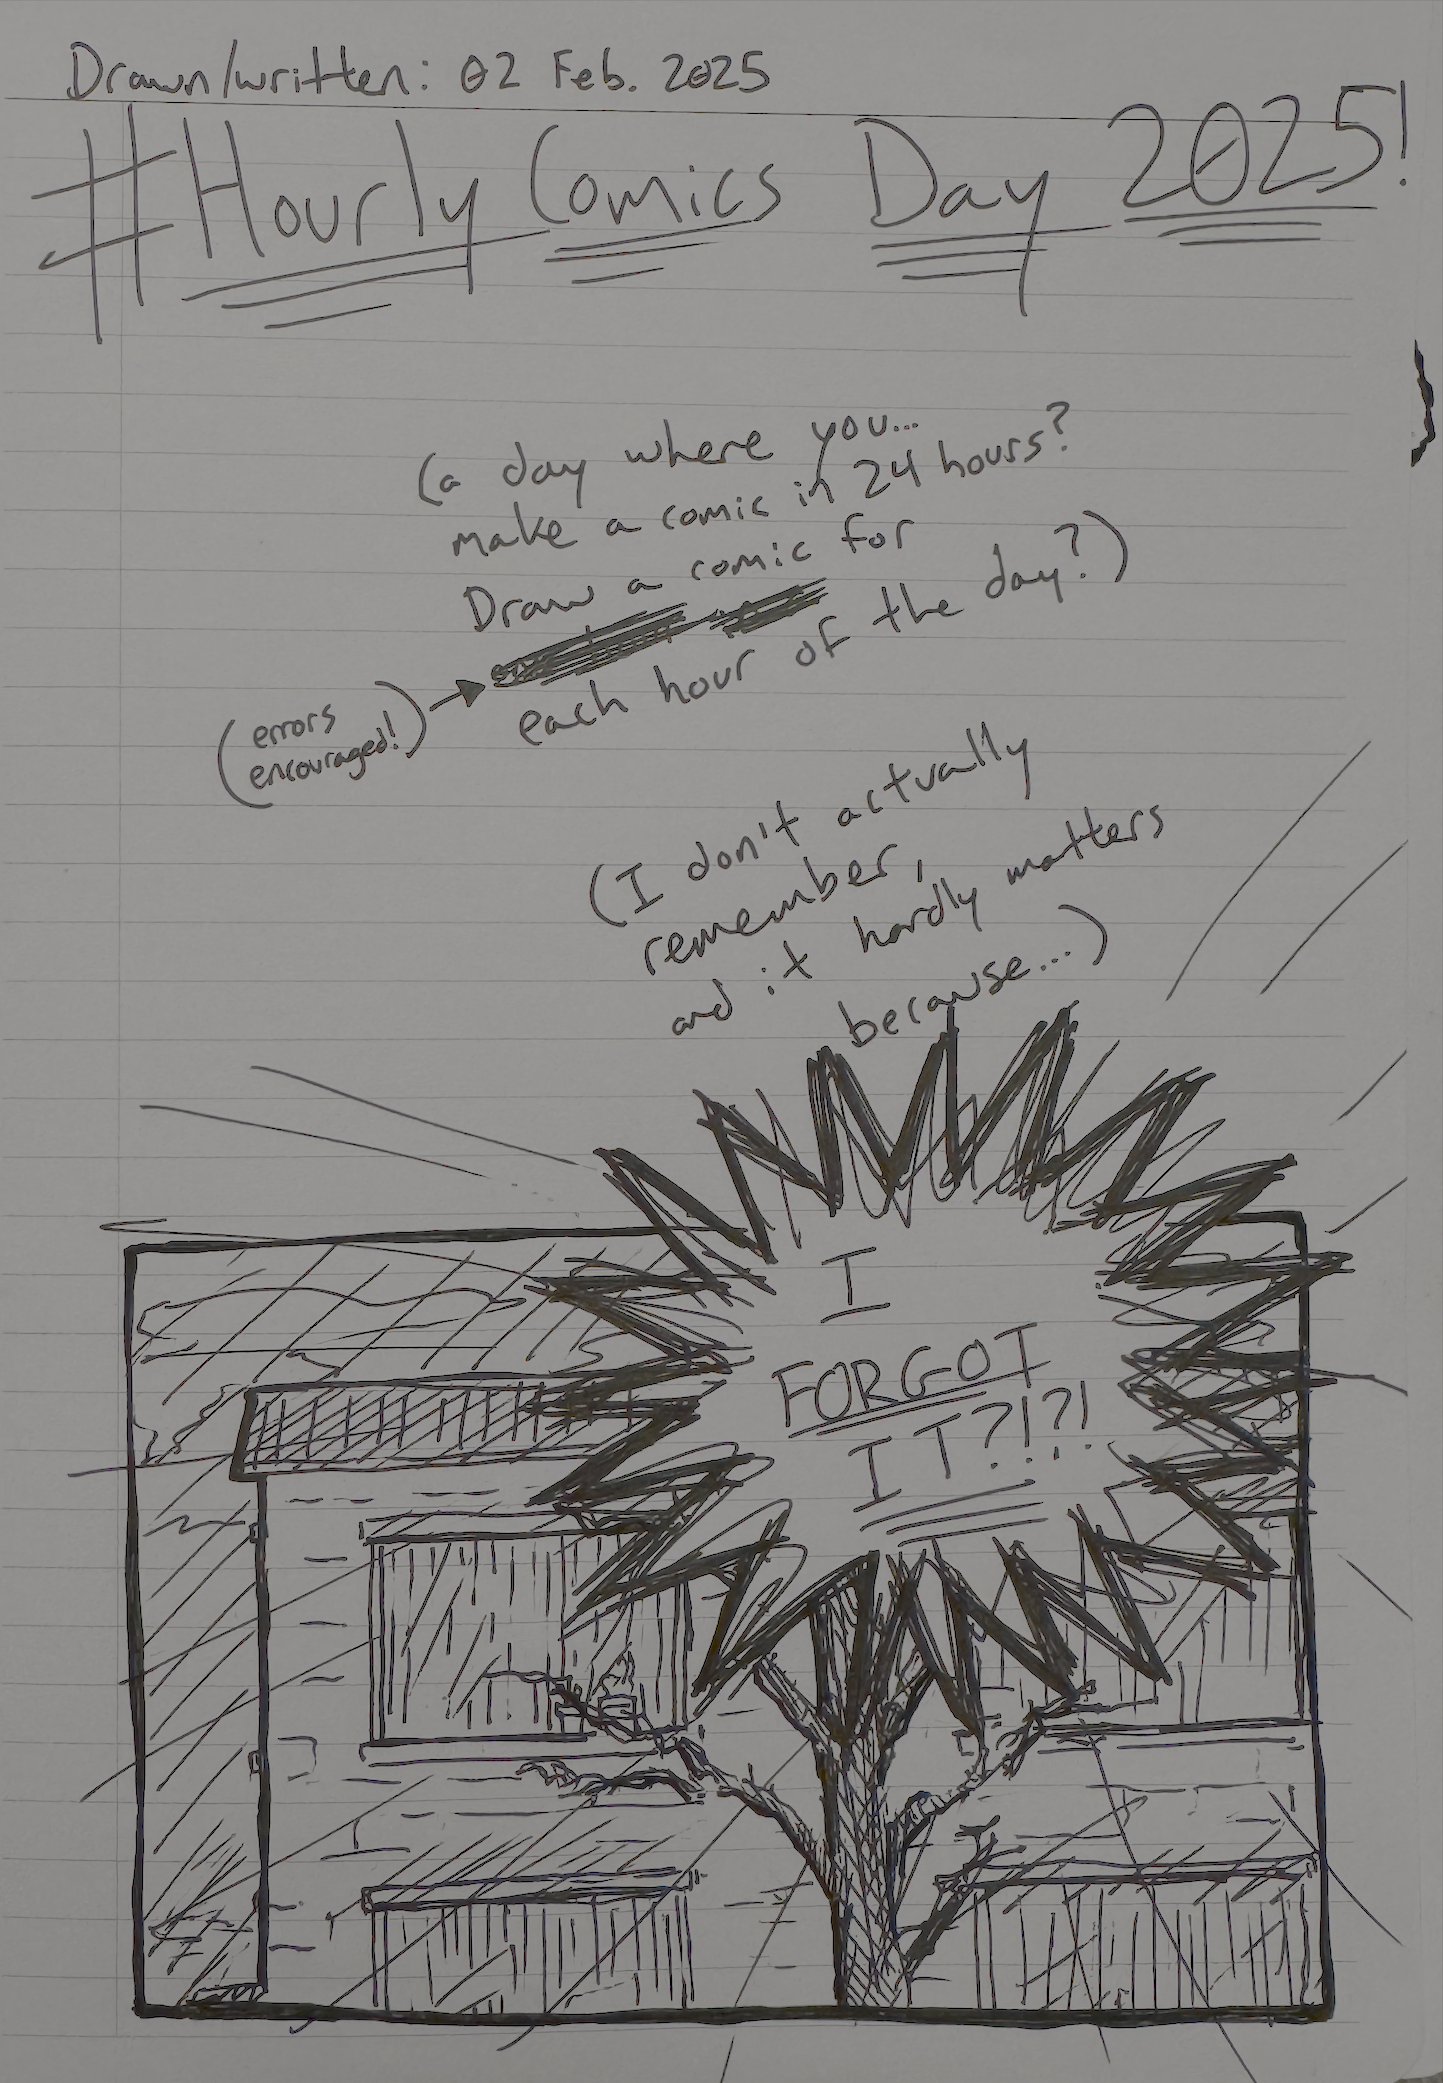 Drawn/written: 02 Feb. 2025
#Hourly Comics Day 2025!
(a day where you...
make a comic in 24 hours?
Draw a comic for
each hour of the day?)
(errors
encouraged!)
(I don't actually
remember,
and it hardly matters
because...)
I
FORGOT
IT?!?!